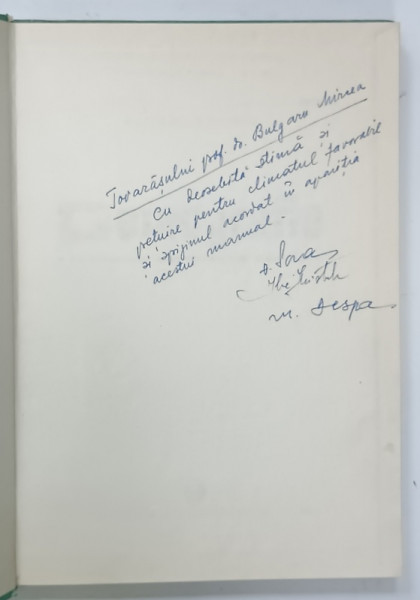 Tovarășului prof. dr. Bulgaru Mircea
Cu deosebită stimă și
prețuire pentru climatul favorabil
și sprijinul acordat în apariția
acestui manual.
D. Sova
M. Despa